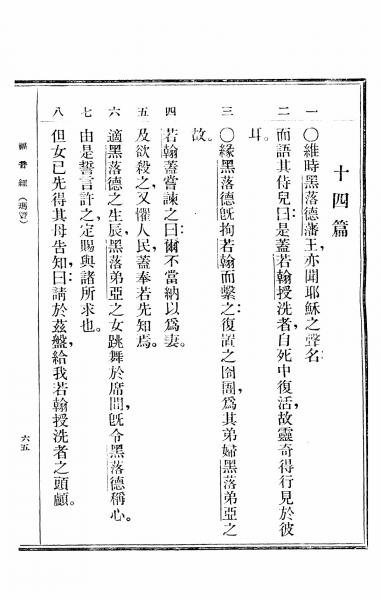 十四篇
一 〇維時黑落德藩王，亦聞耶穌之聲名：
二 而語其侍兒曰：是蓋若翰授洗者，自死中復活，故靈奇得行見於彼
耳。
三 〇緣黑落德旣拘若翰而繫之：復置之囹圄，爲其弟婦黑落弟亞之
故。
四 若翰蓋嘗諫之曰：爾不當納以爲妻。
五 及欲殺之又懼人民，蓋奉若先知焉。
六 適黑落德之生辰，黑落弟亞之女跳舞於席間，旣令黑落德稱心。
七 由是誓言許之定賜與諸所求也。
八 但女已先得其母告知，曰：請於茲盤，給我若翰授洗者之頭顱。
福音經（瑪竇）
六五